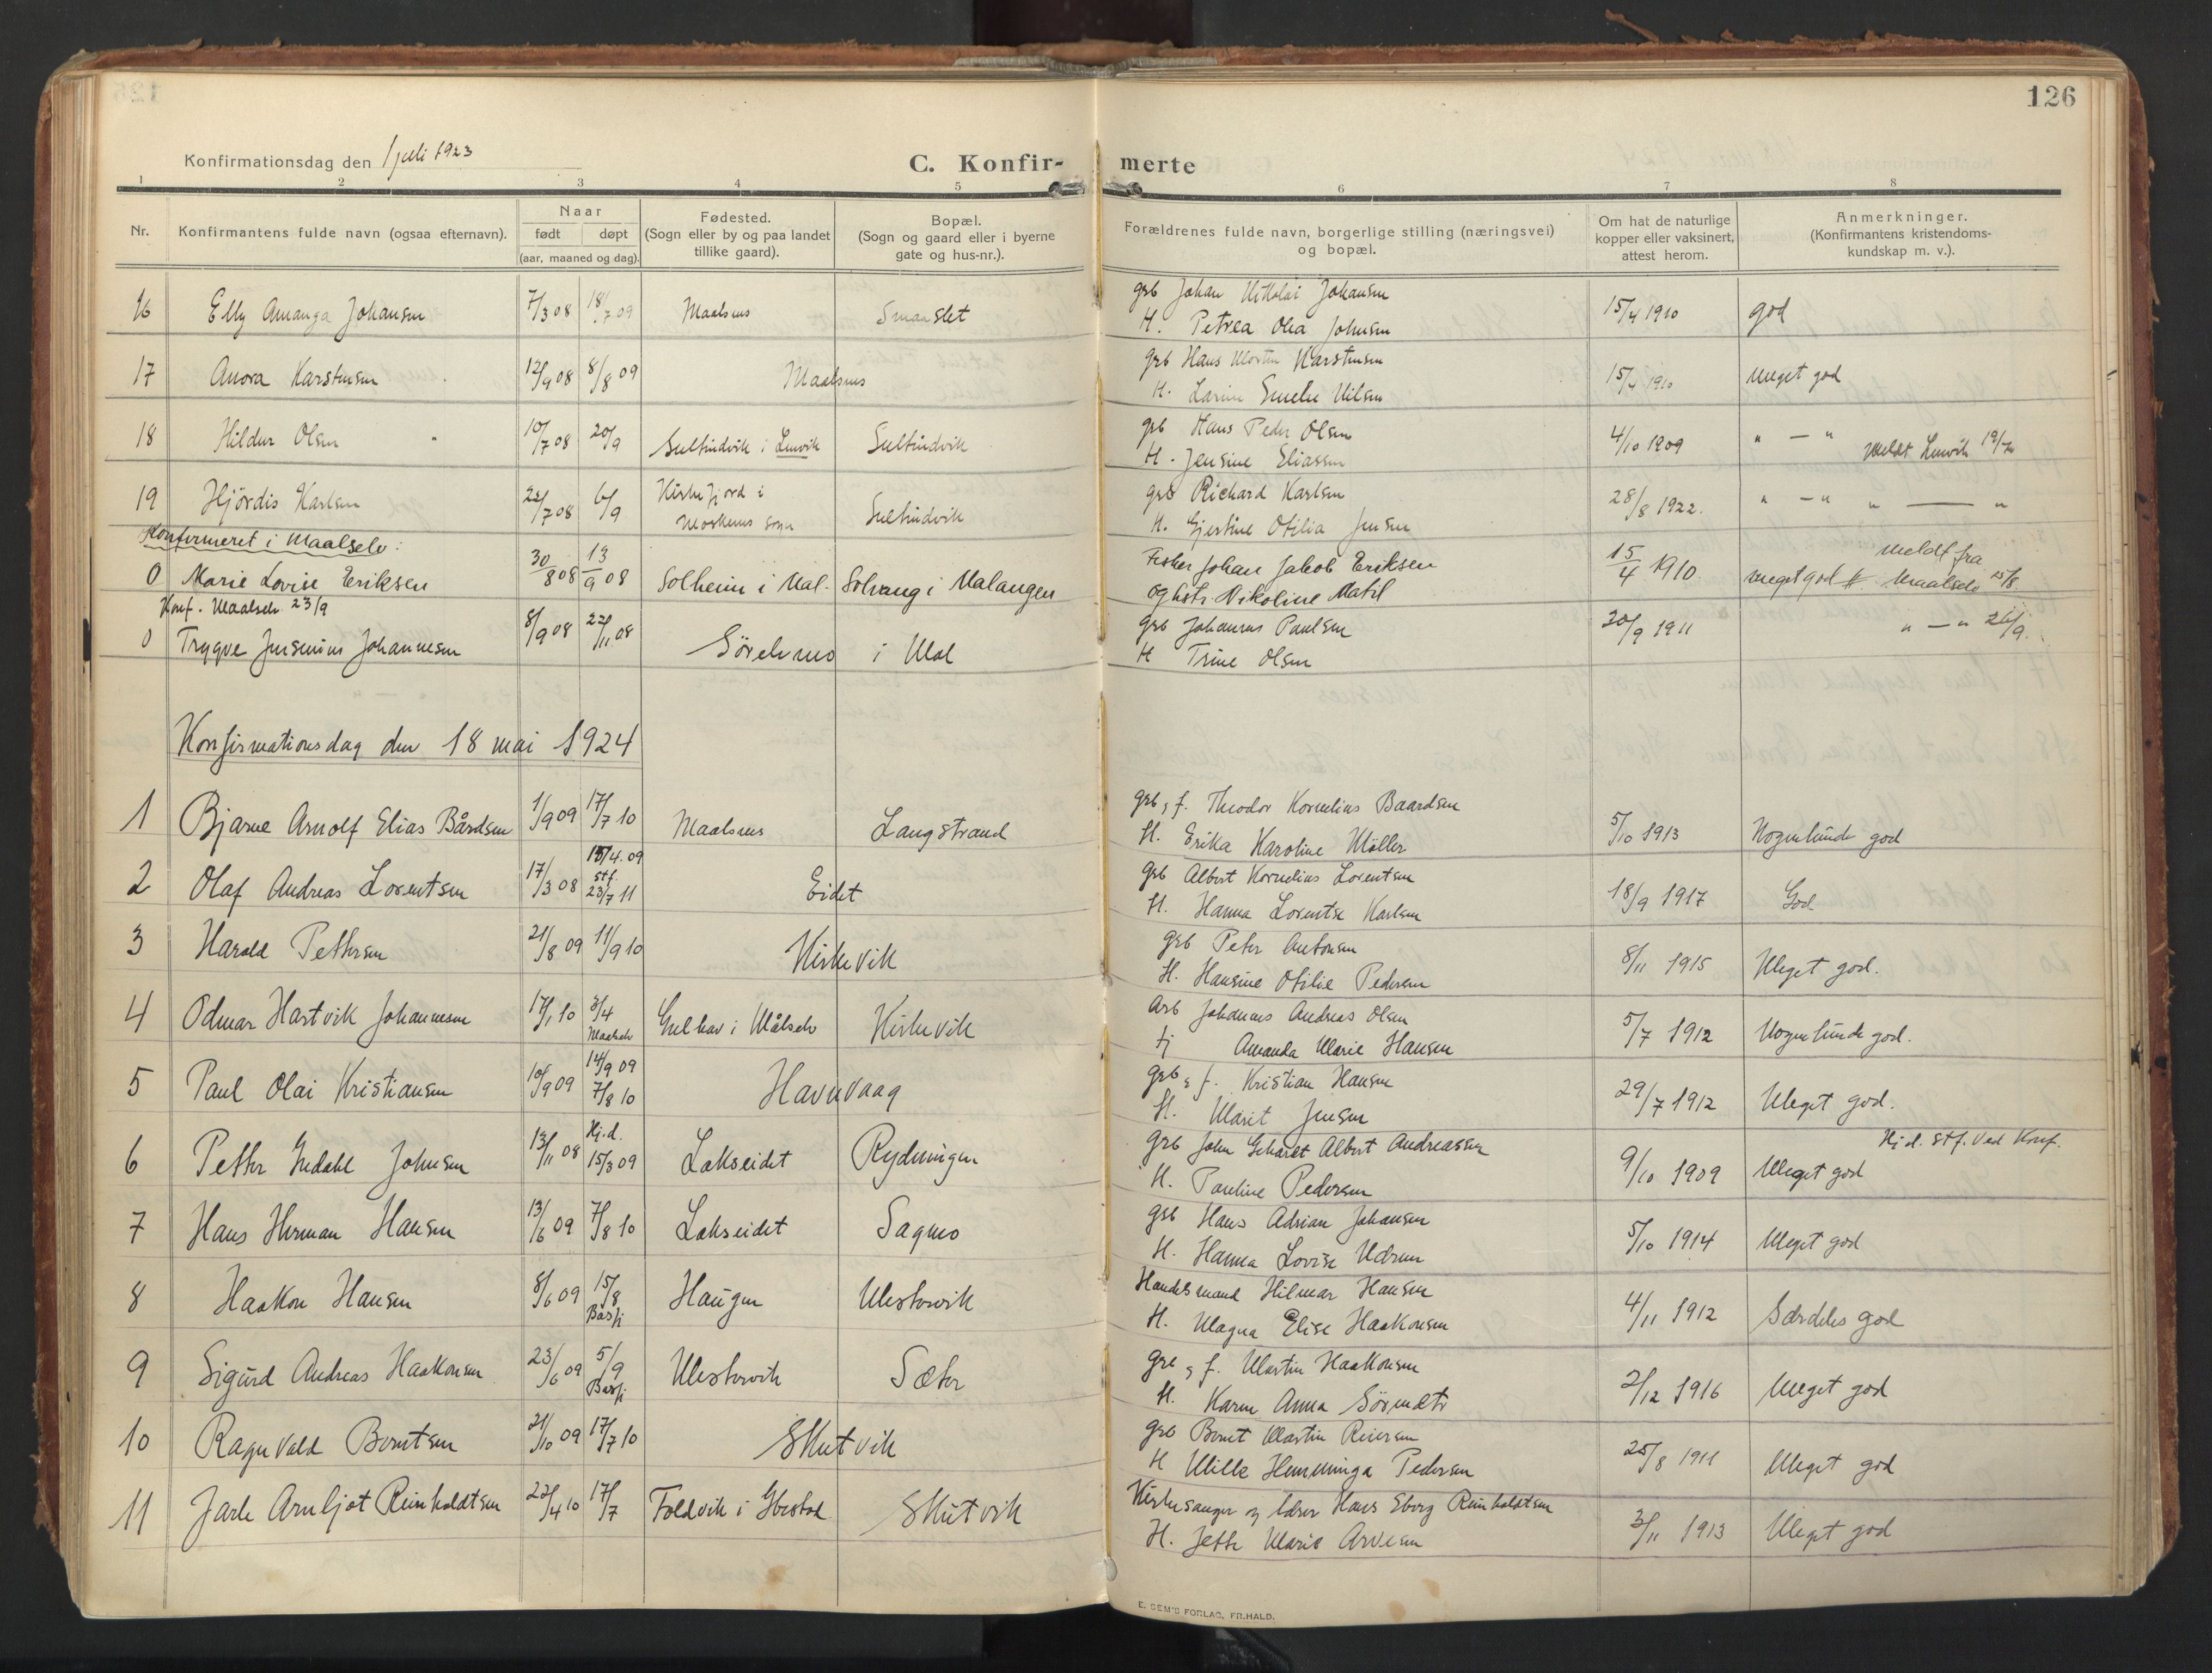 126
Konfirmationsdag den 1 juli 1923
C. Konfir-
merte
1 2 3 4 5 6 7 8
Nr.
Konfirmantens fulde navn (ogsaa efternavn).
Naar
født døpt
(aar, maaned og dag).
Fødested.
(Sogn eller by og paa landet
tillike gaard).
Bopæl.
(Sogn og gaard eller i byerne
gate og hus-nr.).
Forældrenes fulde navn, borgerlige stilling (næringsvei)
og bopæl.
Om hat de naturlige
kopper eller vaksinert,
attest herom.
Anmerkninger.
(Konfirmantens kristendoms-
kundskap m. v.).
16 Elly Amanga Johansen 7/3 08 18/7 09 Maalsnes Smaaslet
grb Johan Nikolai Johansen
H. Petrea Olea Johnsen
15/4 1910 god
17 Anora Karstensen 12/9 08 8/8 09 Maalsnes
grb Hans Morten Karstensen
H. Larine Emelie Nilsen
15/4 1910 Meget god
18 Hildur Olsen 10/7 08 20/9 Sultindvik i Lenvik Sultindvik
grb Hans Peder Olsen
H. Jensine Eliassen
4/10 1909 " — " meldt Lenvik
19 Hjørdis Karlsen 22/7 08 6/9 Kirkefjord i
Moskenes sogn Sultindvik
grb Richard Karlsen
H. Gjertine Otilia Jensen
28/8 1922. " — " " — "
Konfirmeret i Maalselv:
0 Marie Lovise Eriksen 30/8 08 13/9 08 Solheim i Mal. Solvang i Malangen
Fisker Johan Jakob Eriksen
og hstr. Nikoline Matil
15/4 1910. meget god # meldt fra
Maalselv 15/8.
Konf. Maalselv 23/9
0 Trygve Jensenius Johannesen 8/9 08 22/11 08 Sørelvmo i Mal
grb Johannes Paulsen
H Trine Olsen
20/9 1911 " — " 26/9.
Konfirmationsdag den 18 mai 1924
1 Bjarne Arnolf Elias Bårdsen 1/9 09 17/7 10 Maalsnes Langstrand
grb, f. Theodor Kornelius Baardsen
H. Erika Karoline Møller
5/10 1913 Nogenlunde god
2 Olaf Andreas Lorentsen 17/3 08 15/4.09
stf.
23/7 11 Eidet
grb Albert Kornelius Lorentsen
H. Hanna Lorentse Karlsen
18/9 1917 God
3 Harald Pettersen 21/8 09 11/9 10 Kirkevik
grb Peter Antonsen
H. Hansine Otilie Pedersen
8/11 1915 Meget god.
4 Odmar Hartvik Johannesen 17/1 10 3/4
Maalselv Gulhav i Målselv Kirkevik
Arb Johannes Andreas Olsen
tj Amanda Marie Hansen
5/7 1912 Nogenlunde god.
5 Paul Olai Kristiansen 10/9 09 14/9 09
7/8 10 Havnvaag
grb, f. Kristian Hansen
H. Marit Jensen
29/7 1912 Meget god.
6 Petter Indahl Johnsen 13/11 08 Hj.d.
15/3 09 Lakseidet Rydningen
grb John Gehardt Albert Andreassen
H. Pauline Pedersen
9/10 1909 Meget god Hj.d. stf. ved Konf.
7 Hans Herman Hansen 13/6 09 7/8 10 Lakseidet Sagmo
grb Hans Adrian Johansen
H. Hanna Lovise
5/10 1914 Meget god
8 Haakon Hansen 8/6 09 15/8
Basfj Haugen Mestervik
Handelsmand Hilmar Hansen
H. Magna Elise Haakonsen
4/11 1912 Særdeles god
9 Sigurd Andreas Haakonsen 23/6 09 5/9
Basfj Mestervik Sæter
grb, f. Martin Haakonsen
H. Karen Anna Sørensdtr
2/12 1916 Meget god
10 Ragnvald Berntsen 21/10 09 17/7 10 Skutvik
grb Bernt Martin Reiersen
H Mille Hemminga Pedersen
25/8 1911 Meget god
11 Jarle Arnljot Reinholdtsen 22/4 10 17/7 Foldvik i Ibestad Skutvik
Kirkesanger og lærer Hans Eberg Reinholdtsen
H. Jette Marie Arvesen
3/11 1913 Meget god
E. SEM'S FORLAG, FR.HALD.